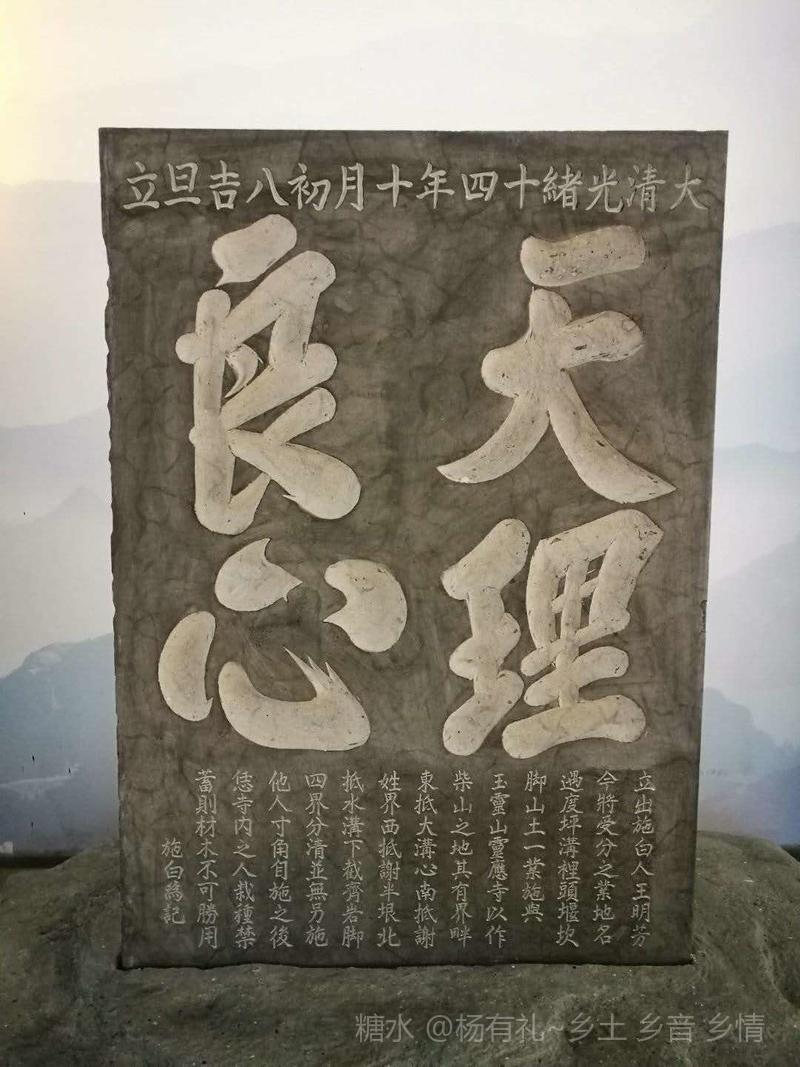 大清光緒十四年十月初八吉旦立
天理
良心
立出施白人王明芳
今將受分之業地名
過度坪溝裡頭堰坎
脚山土一業施與
玉靈山靈應寺以作
柴山之地其有界畔
東抵大溝心南抵謝
姓界西抵謝半垠北
抵水溝下截齊岩脚
四界分清並無另施
他人寸角自施之後
恁寺内之人栽種禁
蓄則材木不可勝用
施白為記
糖水 @杨有礼~乡土 乡音 乡情